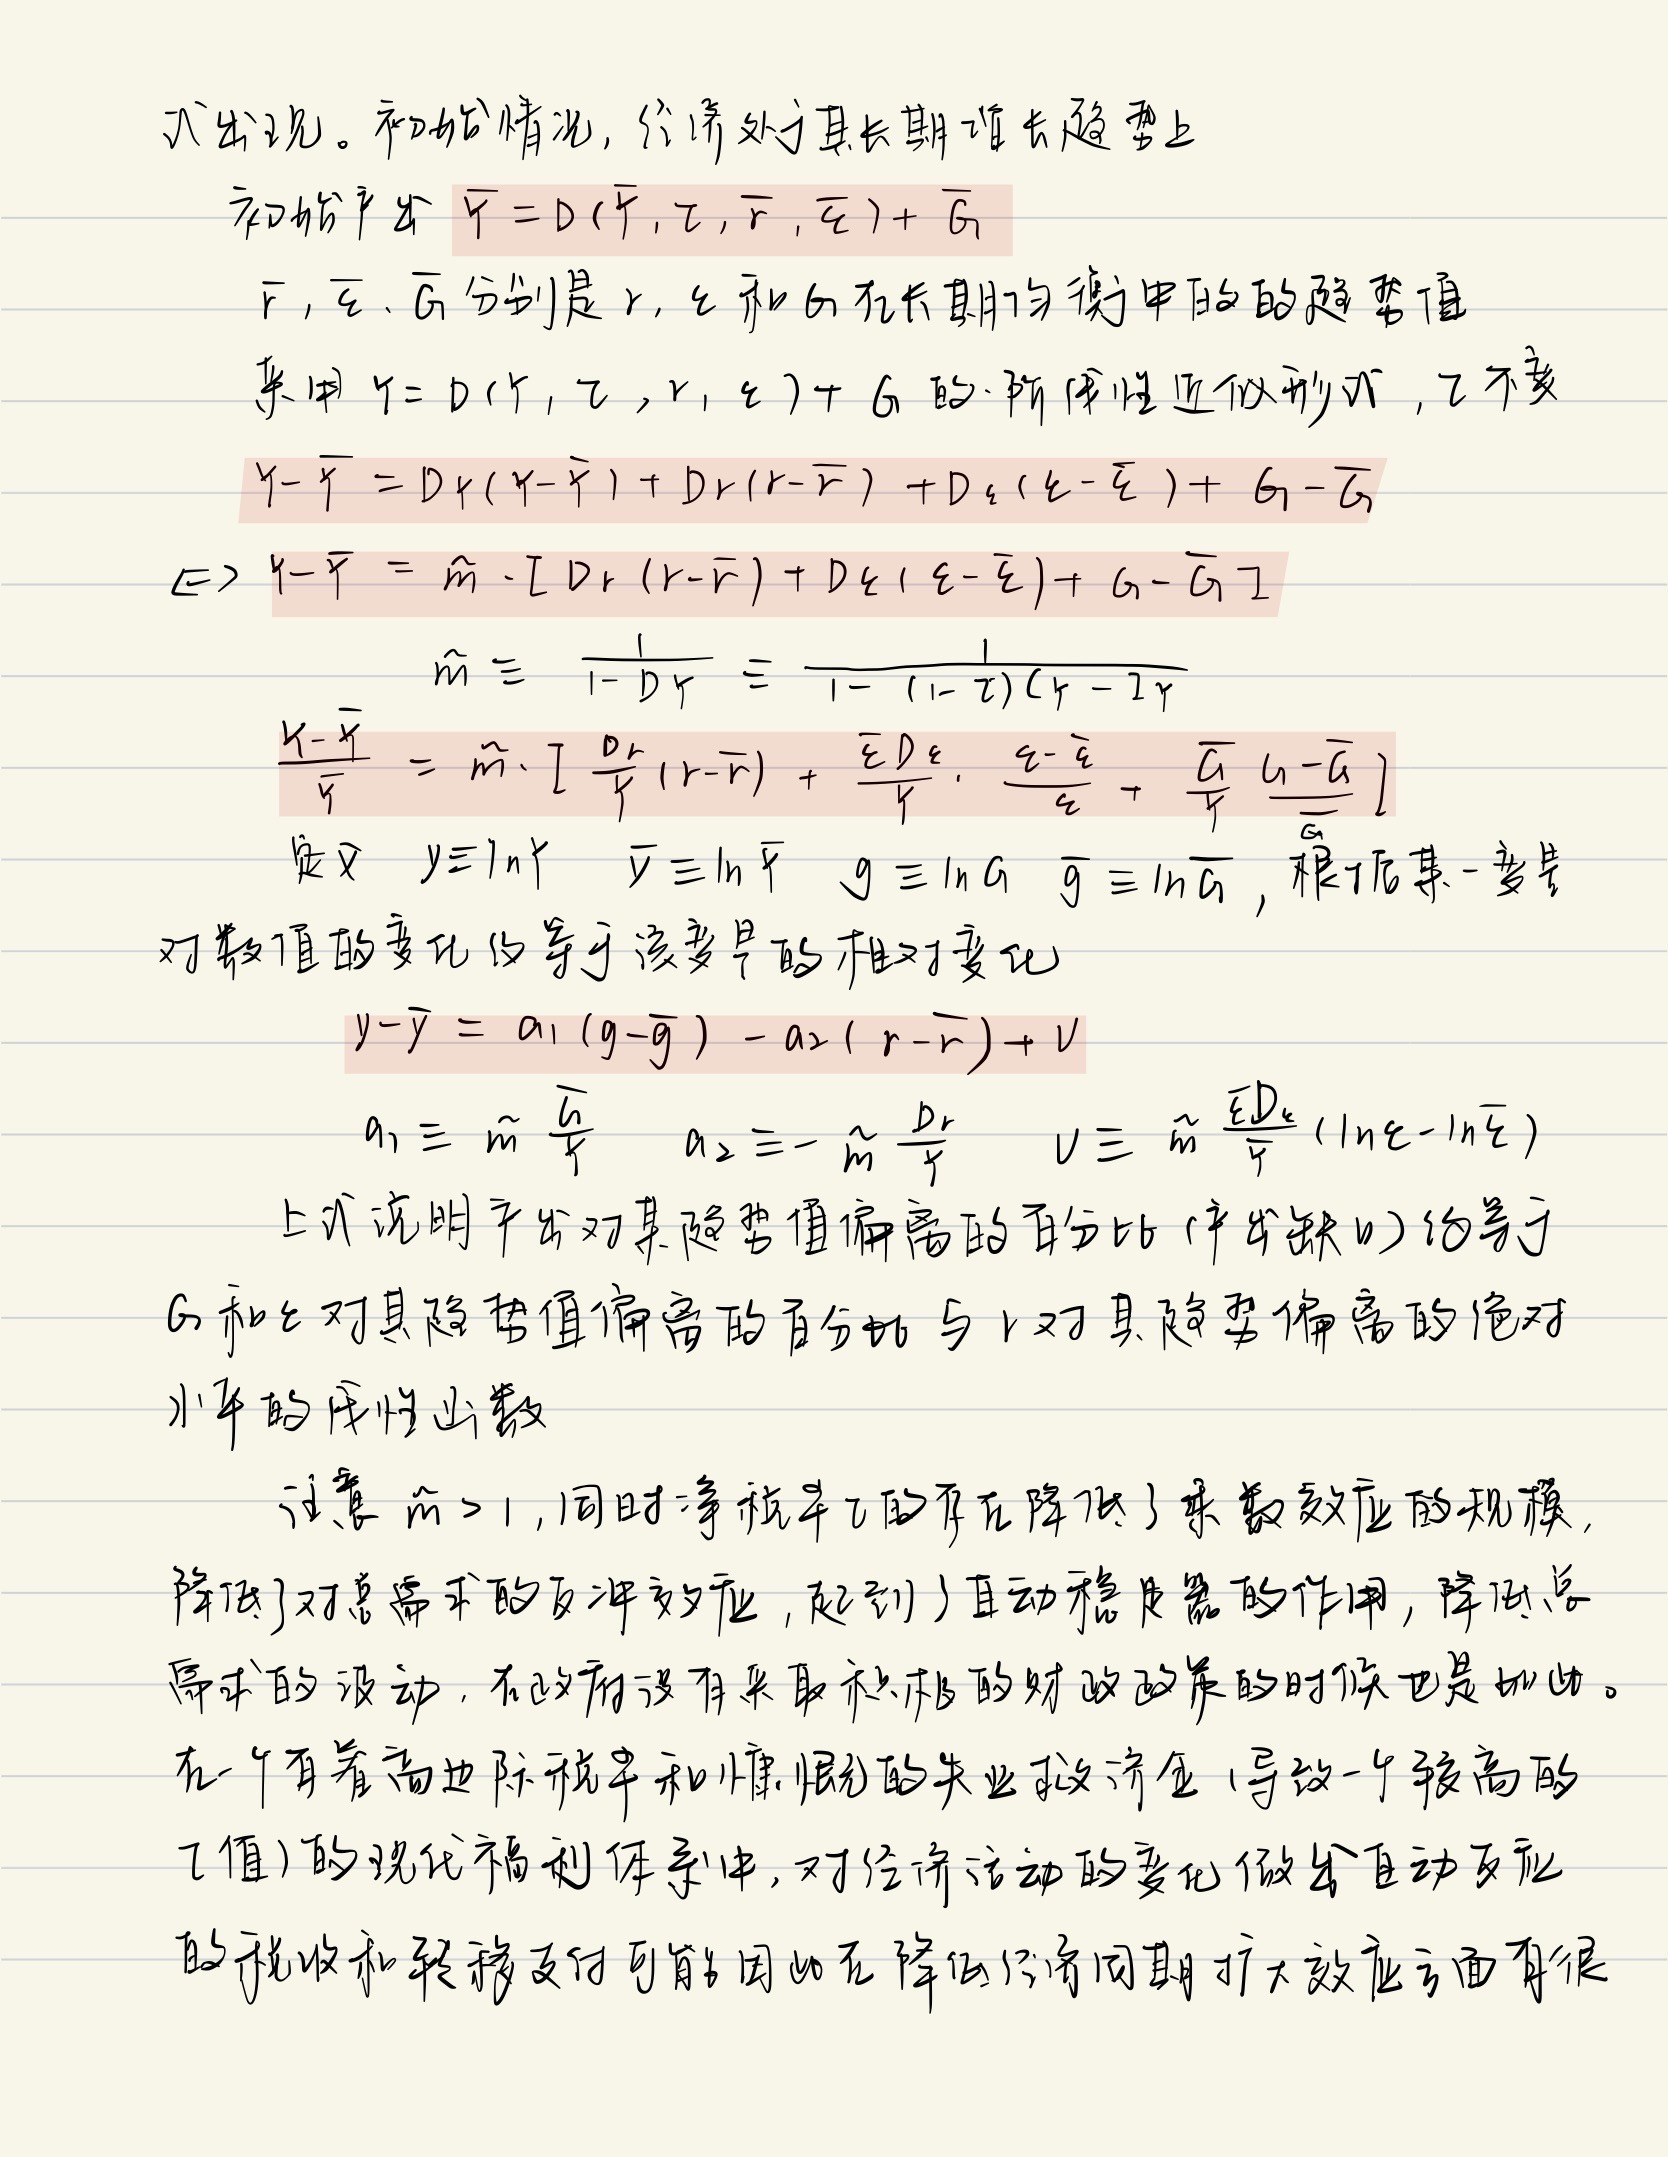 式出现。初始情况，经济处于其长期增长趋势上
初始产出 Ȳ = D(Ȳ, τ, r̄, ε̄) + Ḡ
r̄, ε̄、Ḡ分别是 r, ε 和 G 在长期均衡中的的趋势值
采用 Y = D(Y, τ, r, ε) + G 的一阶线性近似形式，τ不变
Y-Ȳ = D_Y(Y-Ȳ) + D_r(r-r̄) + D_ε(ε-ε̄) + G-Ḡ
<=> Y-Ȳ = m̃·[D_r(r-r̄) + D_ε(ε-ε̄) + G-Ḡ]
m̃ ≡ 1/(1-D_Y) ≡ 1/(1-(1-τ)C_Y-I_Y)
(Y-Ȳ)/Ȳ = m̃·[D_r/Y (r-r̄) + ε̄D_ε/Y · (ε-ε̄)/ε + Ḡ/Y (G-Ḡ)/Ḡ]
定义 y≡lnY ȳ≡lnȲ g≡lnG ḡ≡lnḠ，根据某一变量
对数值的变化约等于该变量的相对变化
y-ȳ = a₁(g-ḡ) - a₂(r-r̄) + v
a₁ ≡ m̃ Ḡ/Y a₂ ≡ -m̃ D_r/Y v ≡ m̃ ε̄D_ε/Ȳ (lnε-lnε̄)
上式说明产出对其趋势值偏离的百分比(产出缺口)约等于
G和ε对其趋势值偏离的百分比与r对其趋势偏离的绝对
水平的线性函数
注意 m̃>1，同时净税率τ的存在降低了乘数效应的规模，
降低了对总需求的反冲效应，起到了自动稳定器的作用，降低总
需求的波动，在政府没有采取积极的财政政策的时候也是如此。
在一个有着高边际税率和慷慨的失业救济金(导致一个较高的
τ值)的现代福利体系中，对经济活动的变化做出自动反应
的税收和转移支付可能因此在降低经济周期扩大效应方面有很